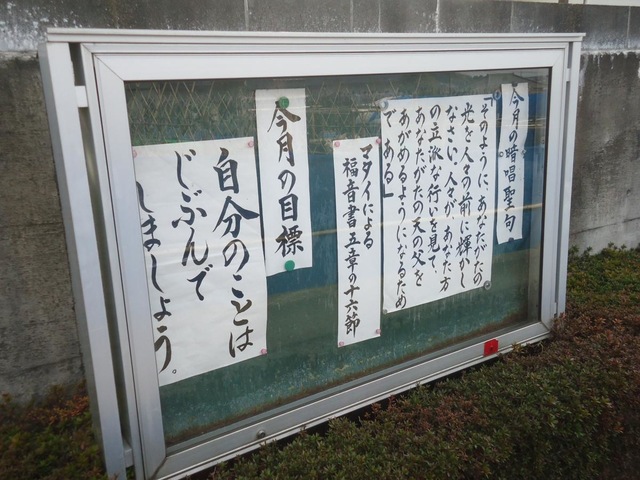 今月の暗唱聖句
そのように、あなたがたの
光を人々の前に輝かし
なさい。人々が、あなた方
の立派な行いを見て
あなたがたの天の父を
あがめるようになるため
である」
マタイによる
福音書五章の十六節
今月の目標
自分のことは
じぶんで
しましょう。